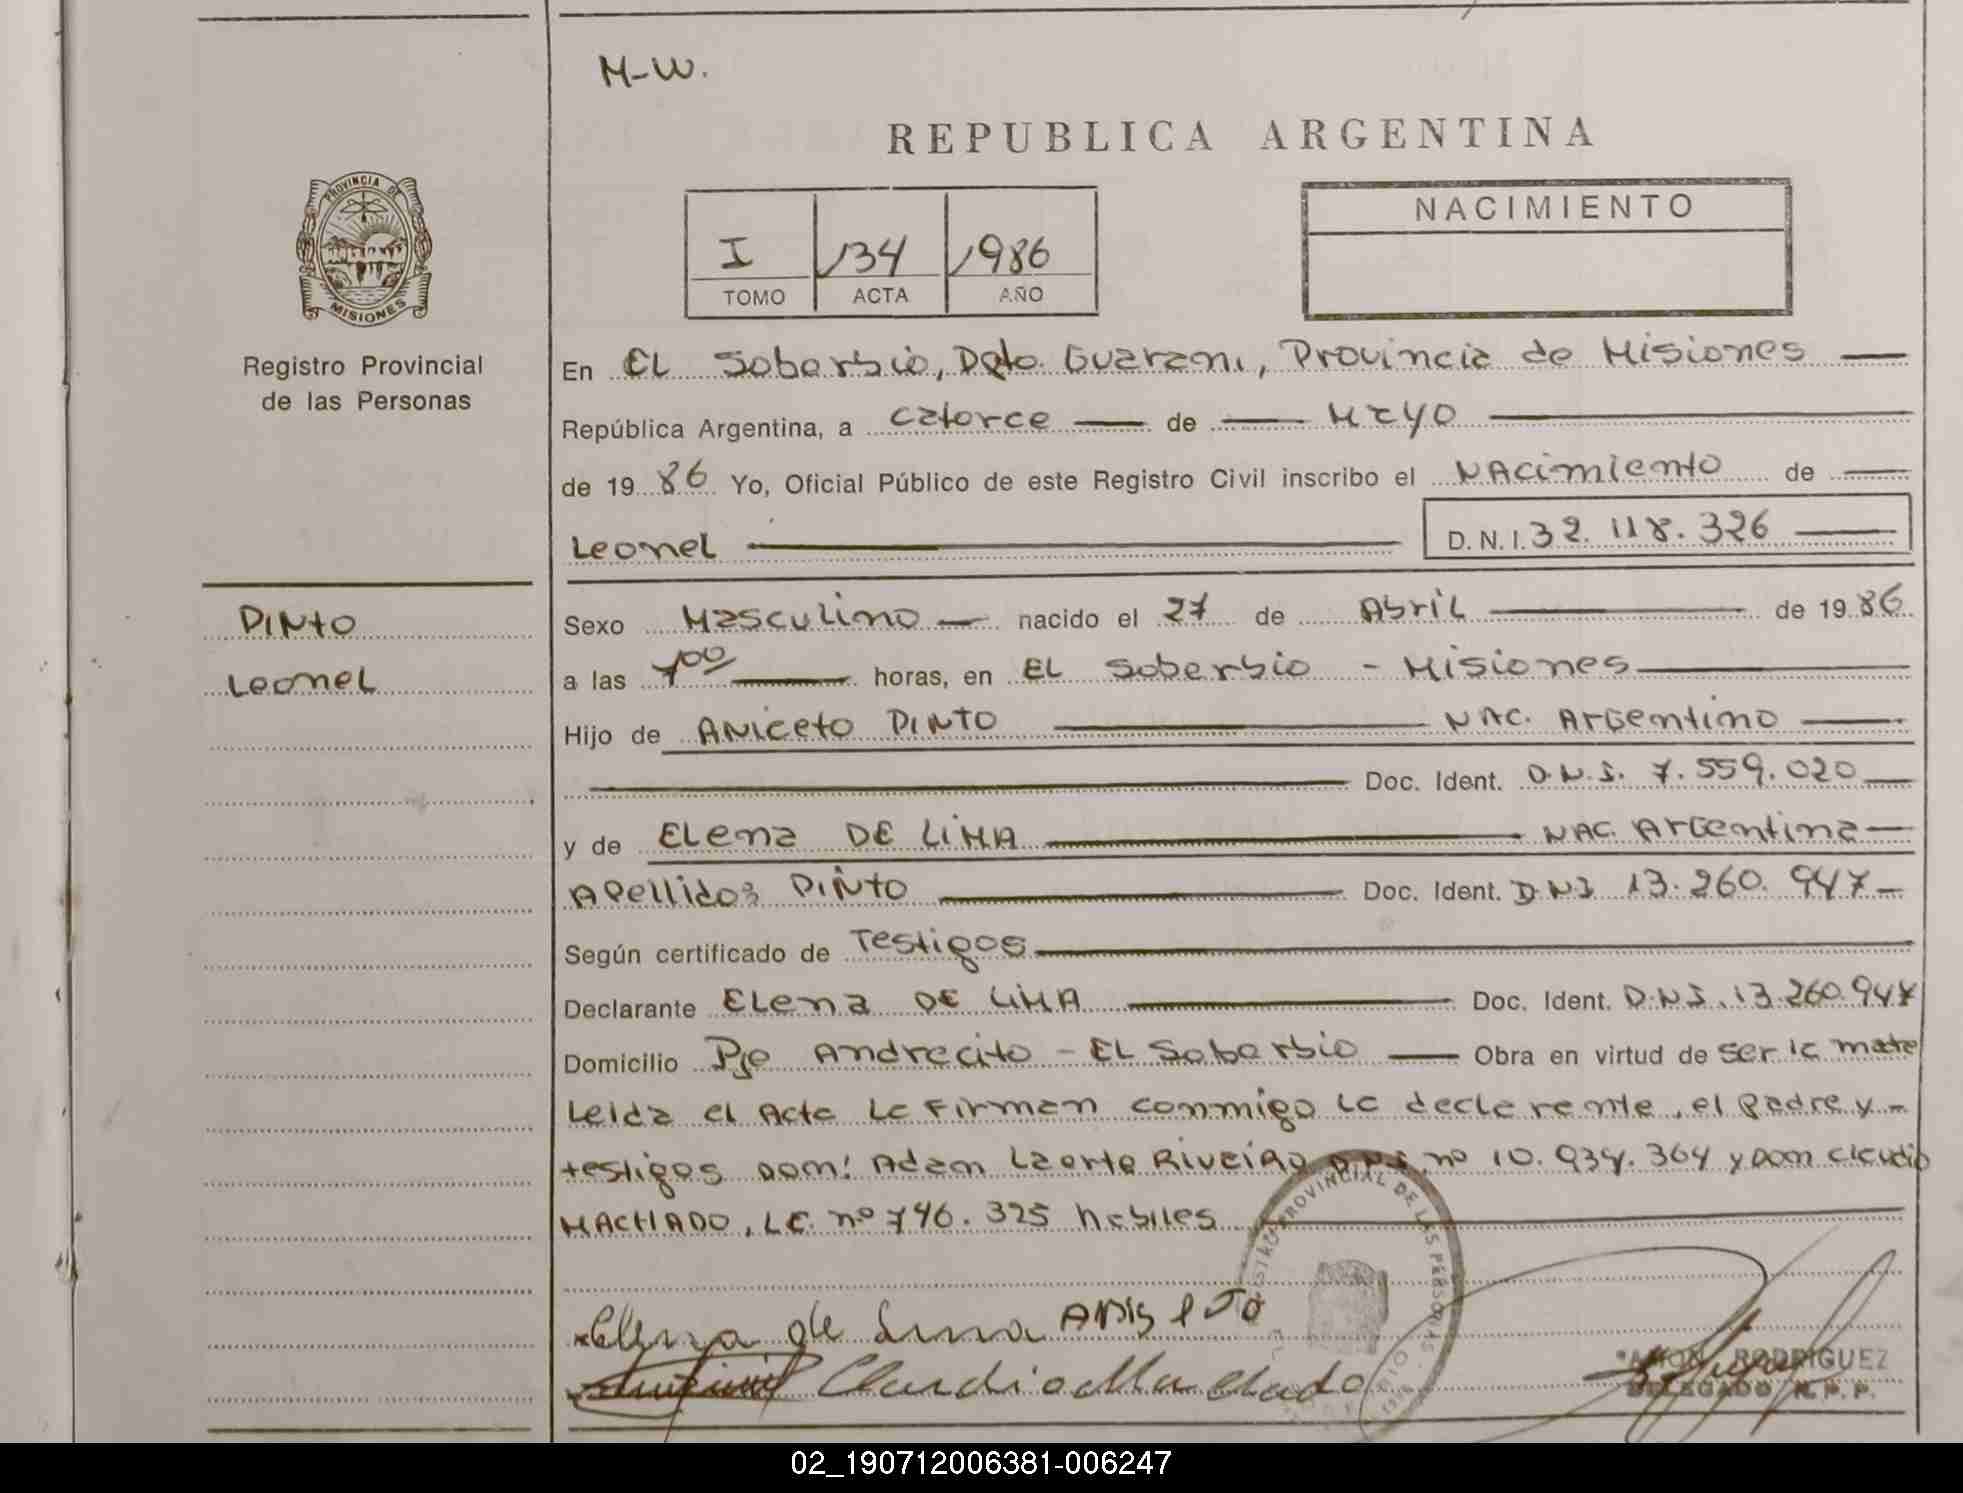 M-W.
REPUBLICA ARGENTINA
PROVINCIA DE
MISIONES
I 134 1986
TOMO ACTA AÑO
NACIMIENTO
Registro Provincial
de las Personas
En EL Soberbio, Dpto. Guarani, Provincia de Misiones
República Argentina, a catorce de Mayo
de 1986 Yo, Oficial Público de este Registro Civil inscribo el NAcimiento de
Leonel D.N.I. 32.118.326
PINTO
Leonel
Sexo Masculino nacido el 27 de Abril de 1986
a las 7 00 horas, en EL Soberbio - Misiones
Hijo de ANiceto PINTO NAC. Argentino
Doc. Ident. D.N.I. 7.559.020
y de Elena DE LIMA NAC. Argentina
Apellidos PiNto Doc. Ident. D.N.I 13.260.947
Según certificado de Testigos
Declarante Elena DE LiMA Doc. Ident. D.N.I. 13.260.947
Domicilio Pje Andrecito - EL Soberbio Obra en virtud de ser la madre
Leida el Acta La Firman conmigo la declarante, el padre y
testigos Don: Adam Laerte Riveiro D.N.I. nº 10.934.364 y Don Claudio
MACHADO, L.E. nº 746.325 habiles
REGISTRO PROVINCIAL DE LAS PERSONAS
Elena de Lima
Claudio Machado
RAMON RODRIGUEZ
DELEGADO R.P.P.
02_190712006381-006247